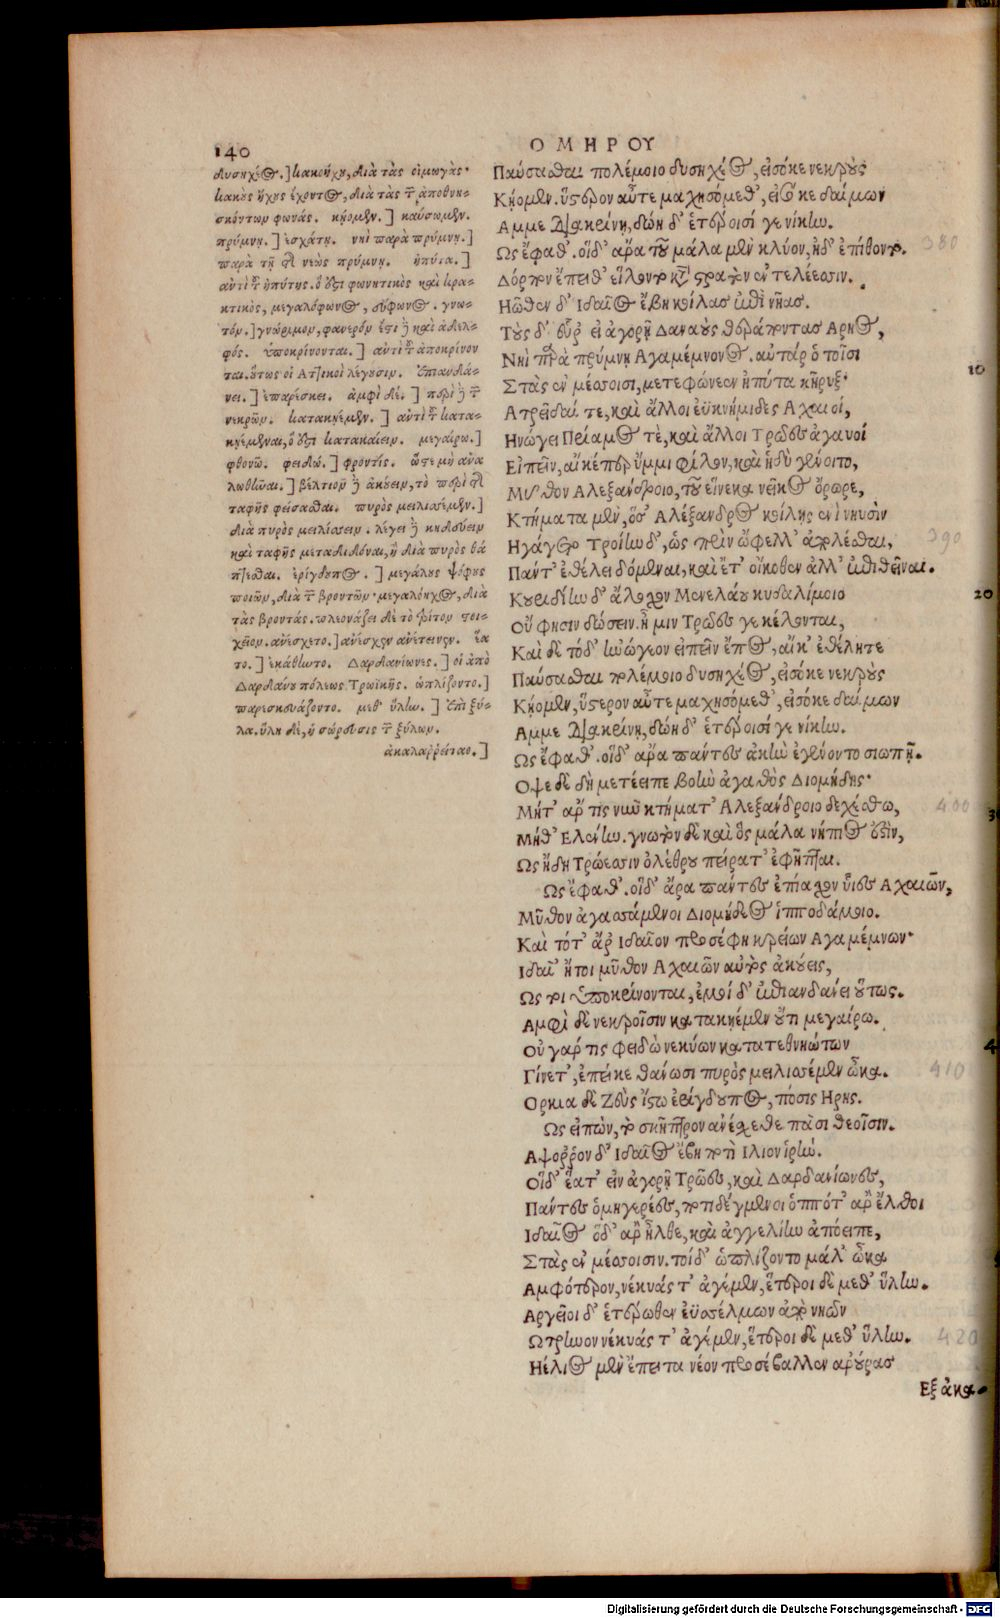 140
ΟΜΗΡΟΥ
δυσηχέος.] κακοήχη, διὰ τὰς οἰμωγὰς·
κακοὺς ἤχους ἔχοντος, διὰ τὰς τῶν ἀποθνη-
σκόντων φωνάς. κήομεν.] καύσωμεν.
πρύμνῃ.] ἐσχάτῃ. νηὶ παρὰ πρύμνῃ.]
παρὰ τῇ τῆς νεὼς πρύμνῃ. ἠπύτα.]
ἀντὶ τοῦ ἠπύτης. ὅ ἐστι φωνητικὸς καὶ κρα-
κτικὸς, μεγαλόφωνος, εὔφωνος. γνω-
τόν.] γνώριμον, φανερόν ἔστι δὲ καὶ ἀδελ-
φός. ὑποκρίνονται.] ἀντὶ τοῦ ἀποκρίνον
ται. οὕτως οἱ Ἀττικοὶ λέγουσιν. ἐπιανδά-
νει.] ἐπαρέσκει. ἀμφὶ δέ.] περὶ δὲ τῶν
νεκρῶν. κατακηέμεν.] ἀντὶ τοῦ κατα-
κηέμεναι, ὅ ἐστι κατακαίειν. μεγαίρω.]
φθονῶ. φειδώ.] φροντίς. ὥστε μὴ ἀνα
λωθῆναι.] βέλτιον δὲ ἀκούειν, τὸ περὶ τῆς
ταφῆς φείσασθαι. πυρὸς μειλισσέμεν.]
διὰ πυρὸς μειλίσσειν. λέγει δὲ κηδεύειν
καὶ ταφῆς μεταδιδόναι, ἢ διὰ πυρὸς θά
πτεσθαι. ἐρίγδουπος.] μεγάλους ψόφους
ποιῶν, διὰ τῶν βροντῶν· μεγαλόηχος, διὰ
τὰς βροντάς. πλεονάζει δὲ τὸ τρίτον στοι-
χεῖον. ἀνέσχετο.] ἀνέσχεν ἀνέτεινεν. ἕα
το.] ἐκάθηντο. Δαρδανίωνες.] οἱ ἀπὸ
Δαρδάνου πόλεως Τρωϊκῆς. ὡπλίζοντο.]
παρεσκευάζοντο. μεθ' ὕλην.] ἐπὶ ξύ-
λα. ὕλη δὲ, ἡ σώρευσις τῶν ξύλων.
ἀκαλαρρείταο.]
Παύσασθαι πολέμοιο δυσηχέος, εἰσόκε νεκροὺς
Κήομεν. ὕστερον αὖτε μαχησόμεθ', εἰσόκε δαίμων
Αμμε διακρίνῃ, δώῃ δ' ἑτέροισί γε νίκην.
Ως ἔφαθ'. οἱ δ' ἄρα τοῦ μάλα μὲν κλύον, ἠδ' ἐπίθοντο.
380
Δόρπον ἔπειθ' εἵλοντο κατὰ στρατὸν ἐν τελέεσσιν.
Ηῶθεν δ' Ιδαῖος ἔβη κοίλας ἐπὶ νῆας.
Τοὺς δ' εὗρ' εἰν ἀγορῇ Δαναοὺς θεράποντας Αρηος,
Νηὶ παρὰ πρύμνῃ Αγαμέμνονος. αὐτάρ ὁ τοῖσι
10
Στὰς ἐν μέσσοισι, μετεφώνεεν ἠπύτα κῆρυξ·
Ατρεῖδαί τε, καὶ ἄλλοι ἐϋκνήμιδες Αχαιοί,
Ηνώγει Πρίαμος τὲ, καὶ ἄλλοι Τρῶες ἀγαυοί
Εἰπεῖν, αἴκέ περ ὔμμι φίλον, καὶ ἡδὺ γένοιτο,
Μῦθον Αλεξάνδροιο, τοῦ εἵνεκα νεῖκος ὄρωρε,
Κτήματα μὲν, ὅσ' Αλέξανδρος κοίλῃς ἐνὶ νηυσὶν
Ηγάγετο Τροίηνδ', ὡς πρὶν ὤφελλ' ἀπολέσθαι,
390
Πάντ' ἐθέλει δόμεναι, καὶ ἔτ' οἴκοθεν ἄλλ' ἐπιθεῖναι.
Κουριδίην δ' ἄλοχον Μενελάου κυδαλίμοιο
20
Οὔ φησιν δώσειν. ἦ μιν Τρῶές γε κέλονται,
Καὶ δὲ τόδ' ἠνώγεον εἰπεῖν ἔπος, αἴκ' ἐθέλητε
Παύσασθαι πολέμοιο δυσηχέος, εἰσόκε νεκροὺς
Κήομεν, ὕστερον αὖτε μαχησόμεθ', εἰσόκε δαίμων
Αμμε διακρίνῃ, δώῃ δ' ἑτέροισί γε νίκην.
Ως ἔφαθ'. οἱ δ' ἄρα πάντες ἀκὴν ἐγένοντο σιωπῇ.
Οψε δὲ δὴ μετέειπε βοὴν ἀγαθὸς Διομήδης·
Μήτ' ἄρ τις νῦν κτήματ' Αλεξάνδροιο δεχέσθω,
400
Μήθ' Ελένην. γνωτὸν δὲ καὶ ὃς μάλα νήπιός ἐστιν,
Ως ἤδη Τρώεσσιν ὀλέθρου πείρατ' ἐφῆπται.
Ως ἔφαθ'. οἱ δ' ἄρα πάντες ἐπίαχον υἷες Αχαιῶν,
Μῦθον ἀγασσάμενοι Διομήδεος ἱπποδάμοιο.
Καὶ τότ' ἄρ Ιδαῖον προσέφη κρείων Αγαμέμνων·
Ιδαῖ' ἤτοι μῦθον Αχαιῶν αὐτὸς ἀκούεις,
Ως τοι ὑποκρίνονται, ἐμοὶ δ' ἐπιανδάνει οὕτως.
Αμφὶ δὲ νεκροῖσιν κατακηέμεν οὔτι μεγαίρω.
Οὐ γάρ τις φειδὼ νεκύων κατατεθνηώτων
Γίνετ', ἐπείκε θάνωσι πυρὸς μειλισσέμεν ὦκα.
410
Ορκια δὲ Ζεὺς ἴστω ἐρίγδουπος, πόσις Ηρης.
Ως εἰπὼν, τὸ σκῆπτρον ἀνέσχεθε πᾶσι θεοῖσιν.
Αψορρον δ' Ιδαῖος ἔβη προτὶ Ιλιον ἱρήν.
Οἱ δ' ἕατ' εἰν ἀγορῇ Τρῶες, καὶ Δαρδανίωνες,
Πάντες ὁμηγερέες, ποτιδέγμενοι ὁππότ' ἄρ ἔλθοι
Ιδαῖος ὁ δ' ἄρ ἦλθε, καὶ ἀγγελίην ἀπόειπε,
Στὰς ἐν μέσσοισιν. τοὶ δ' ὡπλίζοντο μάλ' ὦκα
Αμφότερον, νέκυάς τ' ἀγέμεν, ἕτεροι δὲ μεθ' ὕλην.
Αργεῖοι δ' ἑτέρωθεν ἐϋσσέλμων ἀπὸ νηῶν
Ωτρυνον νέκυάς τ' ἀγέμεν, ἕτεροι δὲ μεθ' ὕλην.
420
Ηέλιος μὲν ἔπειτα νέον προσέβαλλεν ἀρούρας
Εξ ἀκα-
Digitalisierung gefördert durch die Deutsche Forschungsgemeinschaft - DFG